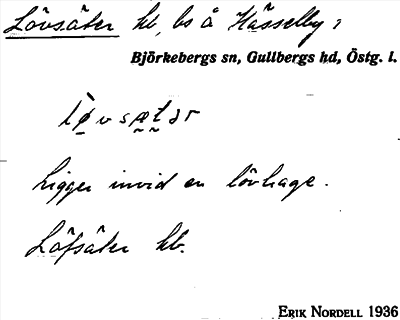 Lövsäter hb, bs å Hässelby,
Björkebergs sn, Gullbergs hd, Östg. l.
Ligger invid en lövhage.
Löfsäter hb.
ERIK NORDELL 1936